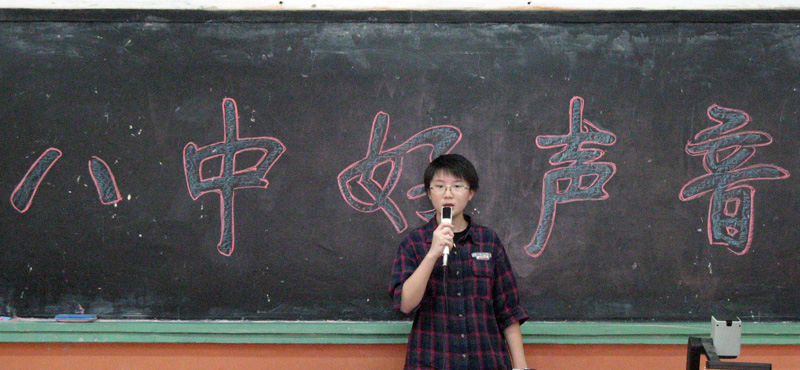 八中好声音